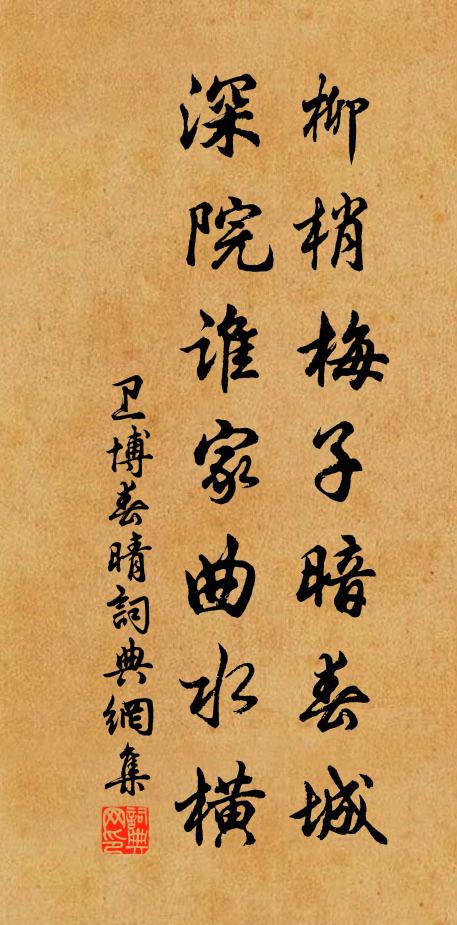 柳梢梅子暗春城
深院谁家曲水横
卫博春晴詞典網集
詞典網印